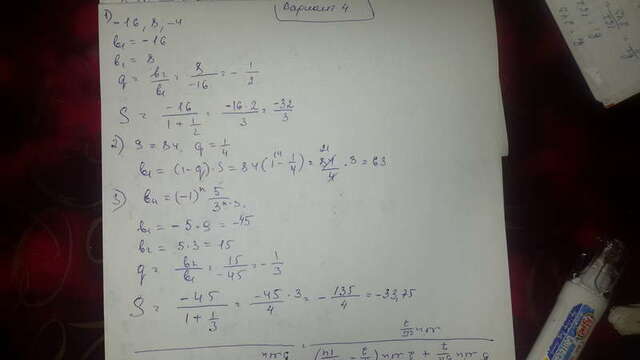 Вариант 4
1) -16, 8, -4
b₁ = -16
b₂ = 8
q = b₂/b₁ = 8/-16 = -1/2
S = -16/(1 + 1/2) = -16·2/3 = -32/3
2) S = 84, q = 1/4
b₁ = (1-q)·S = 84(1 - 1/4) = 84/4 · 3 = 63
3) bₙ = (-1)ⁿ 5/3ⁿ⁻³
b₁ = -5·9 = -45
b₂ = 5·3 = 15
q = b₂/b₁ = 15/-45 = -1/3
S = -45/(1 + 1/3) = -45·3/4 = -135/4 = -33,75